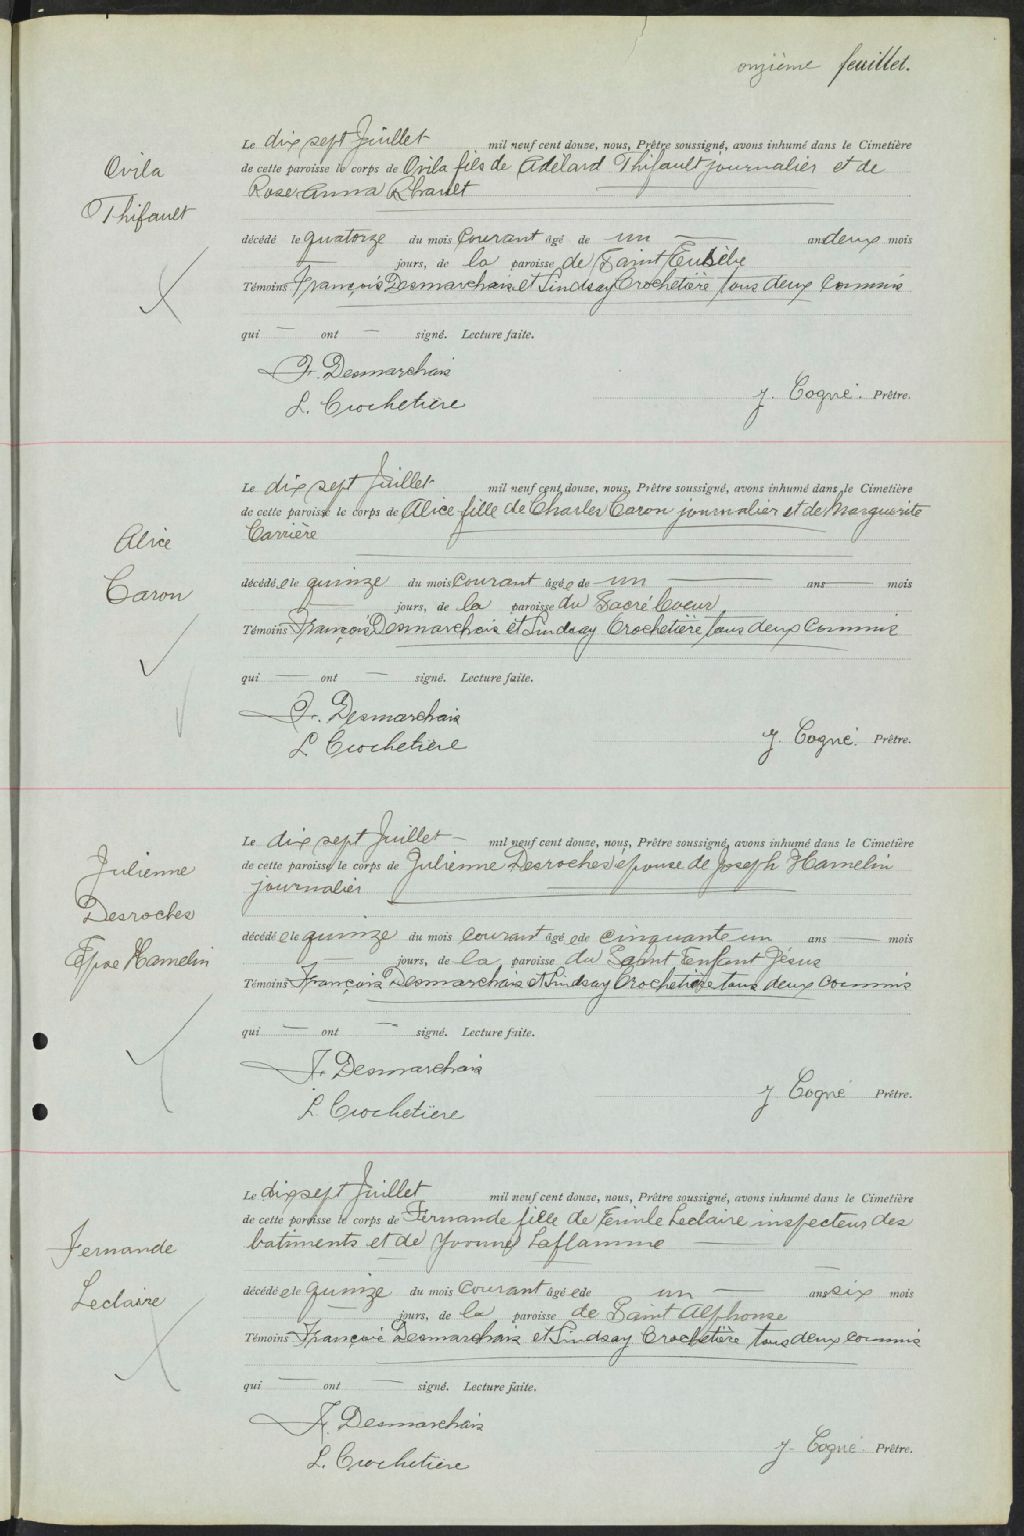 onzième feuillet.
Ovila
Thifault
Le dix sept Juillet mil neuf cent douze, nous, Prêtre soussigné, avons inhumé dans le Cimetière
de cette paroisse le corps de Ovila fils de Adélard Thifault journalier et de
Rose Anna Rhault
décédé le quatorze du mois courant âgé de un — ans deux mois
— jours, de la paroisse de Saint Eusèbe
Témoins François Desmarchais et Lindsay Crochetière tous deux commis
qui — ont — signé. Lecture faite.
F. Desmarchais
L. Crochetière
J. Cogné. Prêtre.
Alice
Caron
Le dix sept Juillet mil neuf cent douze, nous, Prêtre soussigné, avons inhumé dans le Cimetière
de cette paroisse le corps de Alice fille de Charles Caron journalier et de Marguerite
Carrière
décédée le quinze du mois courant âgée de un — ans — mois
— jours, de la paroisse du Sacré Coeur
Témoins François Desmarchais et Lindsay Crochetière tous deux commis
qui — ont — signé. Lecture faite.
F. Desmarchais
L. Crochetière
J. Cogné. Prêtre.
Julienne
Desroches
Epse Hamelin
Le dix sept Juillet — mil neuf cent douze, nous, Prêtre soussigné, avons inhumé dans le Cimetière
de cette paroisse le corps de Julienne Desroches épouse de Joseph Hamelin
journalier
décédée le quinze du mois courant âgée de cinquante un ans — mois
— jours, de la paroisse du Saint Enfant Jésus
Témoins François Desmarchais et Lindsay Crochetière tous deux commis
qui — ont — signé. Lecture faite.
F. Desmarchais
L. Crochetière
J. Cogné Prêtre.
Fernande
Leclaire
Le dix sept Juillet mil neuf cent douze, nous, Prêtre soussigné, avons inhumé dans le Cimetière
de cette paroisse le corps de Fernande fille de Leclaire inspecteur des
batiments et de Yvonne Laflamme —
décédée le quinze du mois courant âgée de un — ans six mois
— jours, de la paroisse de Saint Alphonse
Témoins François Desmarchais et Lindsay Crochetière tous deux commis
qui — ont — signé. Lecture faite.
F. Desmarchais
L. Crochetière
J. Cogné. Prêtre.